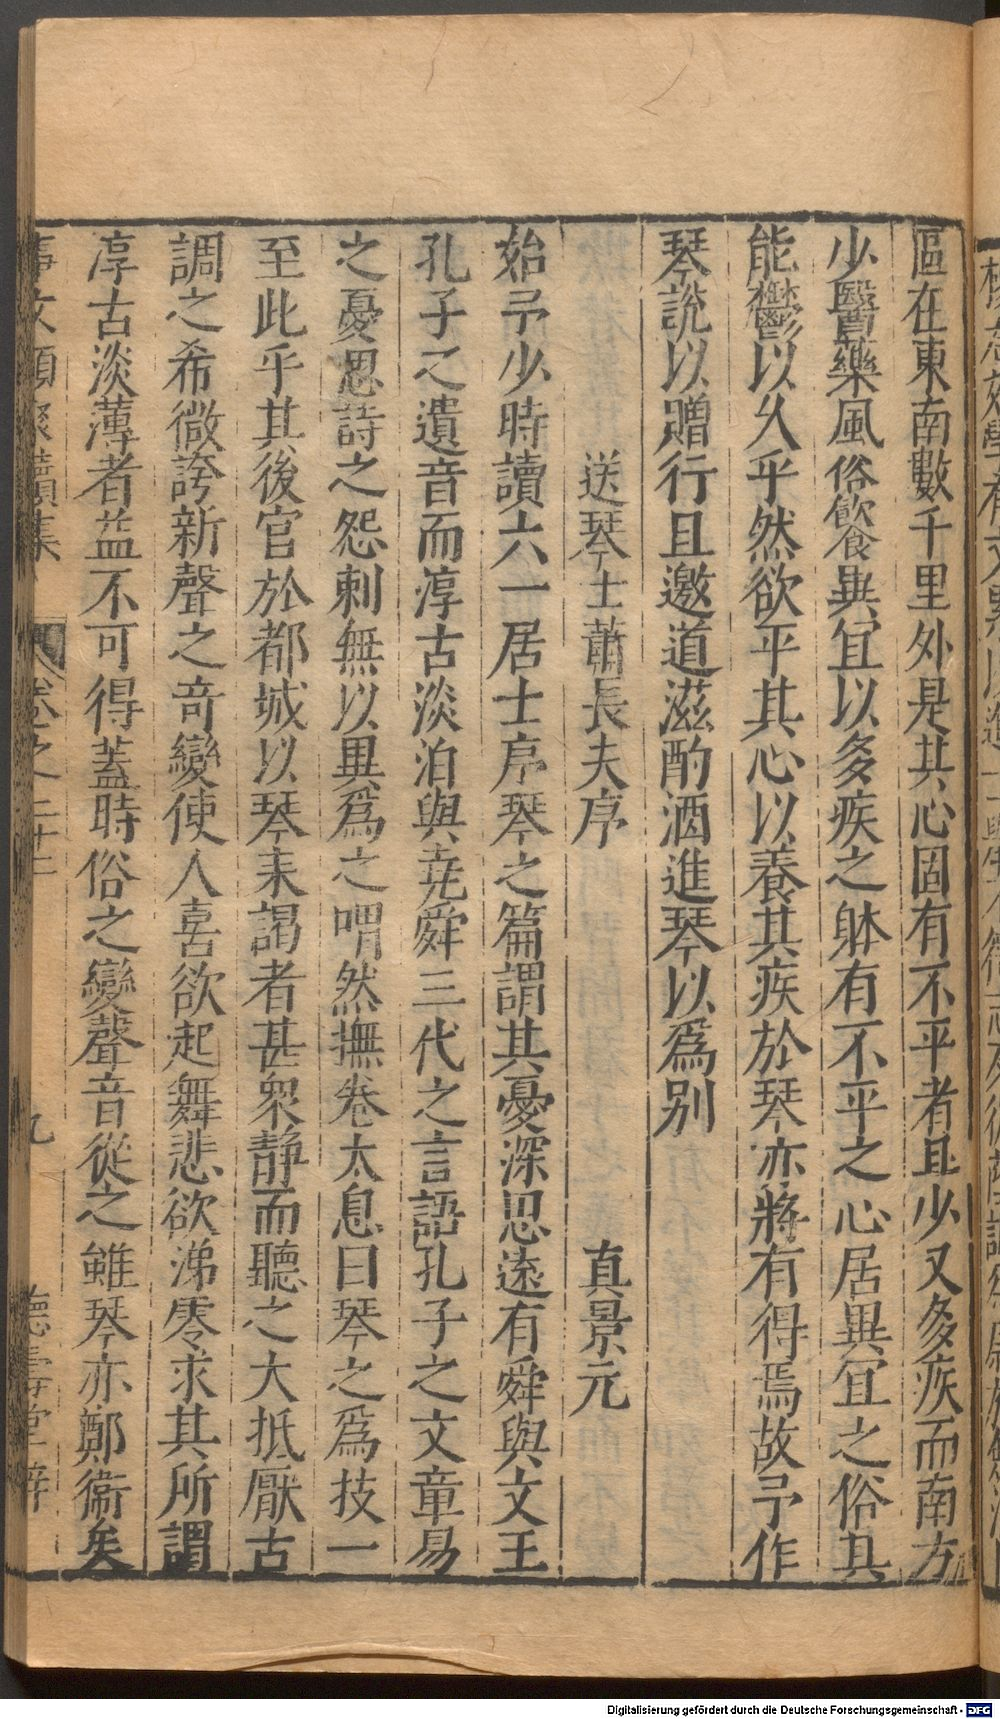 區在東南數千里外是其心固有不平者且少又多疾而南方
少醫藥風俗飲食異冝以多疾之躰有不平之心居異冝之俗其
能鬱鬱以久乎然欲平其心以養其疾於琴亦將有得焉故予作
琴說以贈行且邀道滋酌酒進琴以爲別
送琴士蕭長夫序 真景元
始予少時讀六一居士序琴之篇謂其憂深思遠有舜與文王
孔子之遺音而淳古淡泊與堯舜三代之言語孔子之文章易
之憂思詩之怨刺無以異爲之喟然撫卷太息曰琴之爲技一
至此乎其後官於都城以琴来謁者甚衆静而聽之大抵厭古
調之希微誇新聲之竒變使人喜欲起舞悲欲涕零求其所謂
淳古淡薄者益不可得蓋時俗之變聲音從之雖琴亦鄭衞矣
事文類聚續集 卷之二十二 九 德壽堂梓
Digitalisierung gefördert durch die Deutsche Forschungsgemeinschaft - DFG